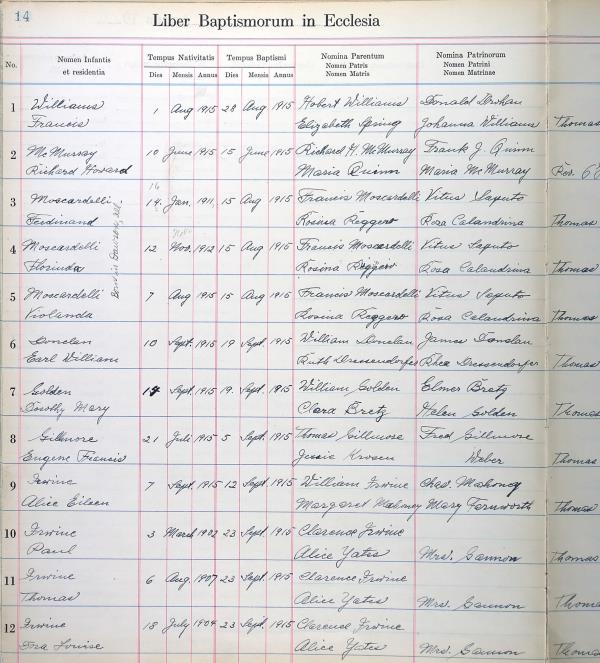 14
Liber Baptismorum in Ecclesia
No.
Nomen Infantis
et residentia
Tempus Nativitatis
Dies Mensis Annus
Tempus Baptismi
Dies Mensis Annus
Nomina Parentum
Nomen Patris
Nomen Matris
Nomina Patrinorum
Nomen Patrini
Nomen Matrinae
1 Williams 1 Aug 1915 28 Aug 1915 Hobert Williams Donald
Francis Elizabeth Spring Johanna Williams Thomas
2 McMurray 10 June 1915 15 June 1915 Richard H. McMurray Frank J. Quinn
Richard Howard Maria Quinn Maria McMurray Rev.
16
3 Moscardelli 14. Jan. 1911, 15 Aug 1915 Francis Moscardelli Vitus Saputo
Ferdinand Rosina Reggero Rosa Calandrina Thomas
Nov.
4 Moscardelli 12 Nov. 1912 15 Aug 1915 Francis Moscardelli Vitus Saputo
Florinda Rosina Reggero Rosa Calandrina Thomas
5 Moscardelli 7 Aug 1915 15 Aug 1915 Francis Moscardelli Vitus Saputo
Violanda Rosina Reggero Rosa Calandrina Thomas
6 Donelan 10 Sept. 1915 19 Sept. 1915 William Donelan James Donelan
Earl William Ruth Dressendorfer Rhea Dressendorfer Thomas
7 Golden Sept. 1915 19. Sept. 1915 William Golden Elmer Bretz
Dorothy Mary Clara Bretz Helen Golden Thomas
8 Gillmore 21 Juli 1915 5 Sept. 1915 Thomas Gillmore Fred Gillmore
Eugene Francis Jessie Weber Thomas
9 Irwine 7 Sept. 1915 12 Sept. 1915 William Irwine Chas. Mahoney
Alice Eileen Margaret Mahoney Mary Farnworth Thomas
10 Irwine 3 March 1902 23 Sept. 1915 Clarence Irwine
Paul Alice Yates Mrs. Gannon Thomas
11 Irwine 6 Aug. 1907 23 Sept. 1915 Clarence Irwine
Thomas Alice Yates Mrs. Gannon Thomas
12 Irwine 18 July 1904 23 Sept. 1915 Clarence Irwine
Louise Alice Yates Mrs. Gannon Thomas